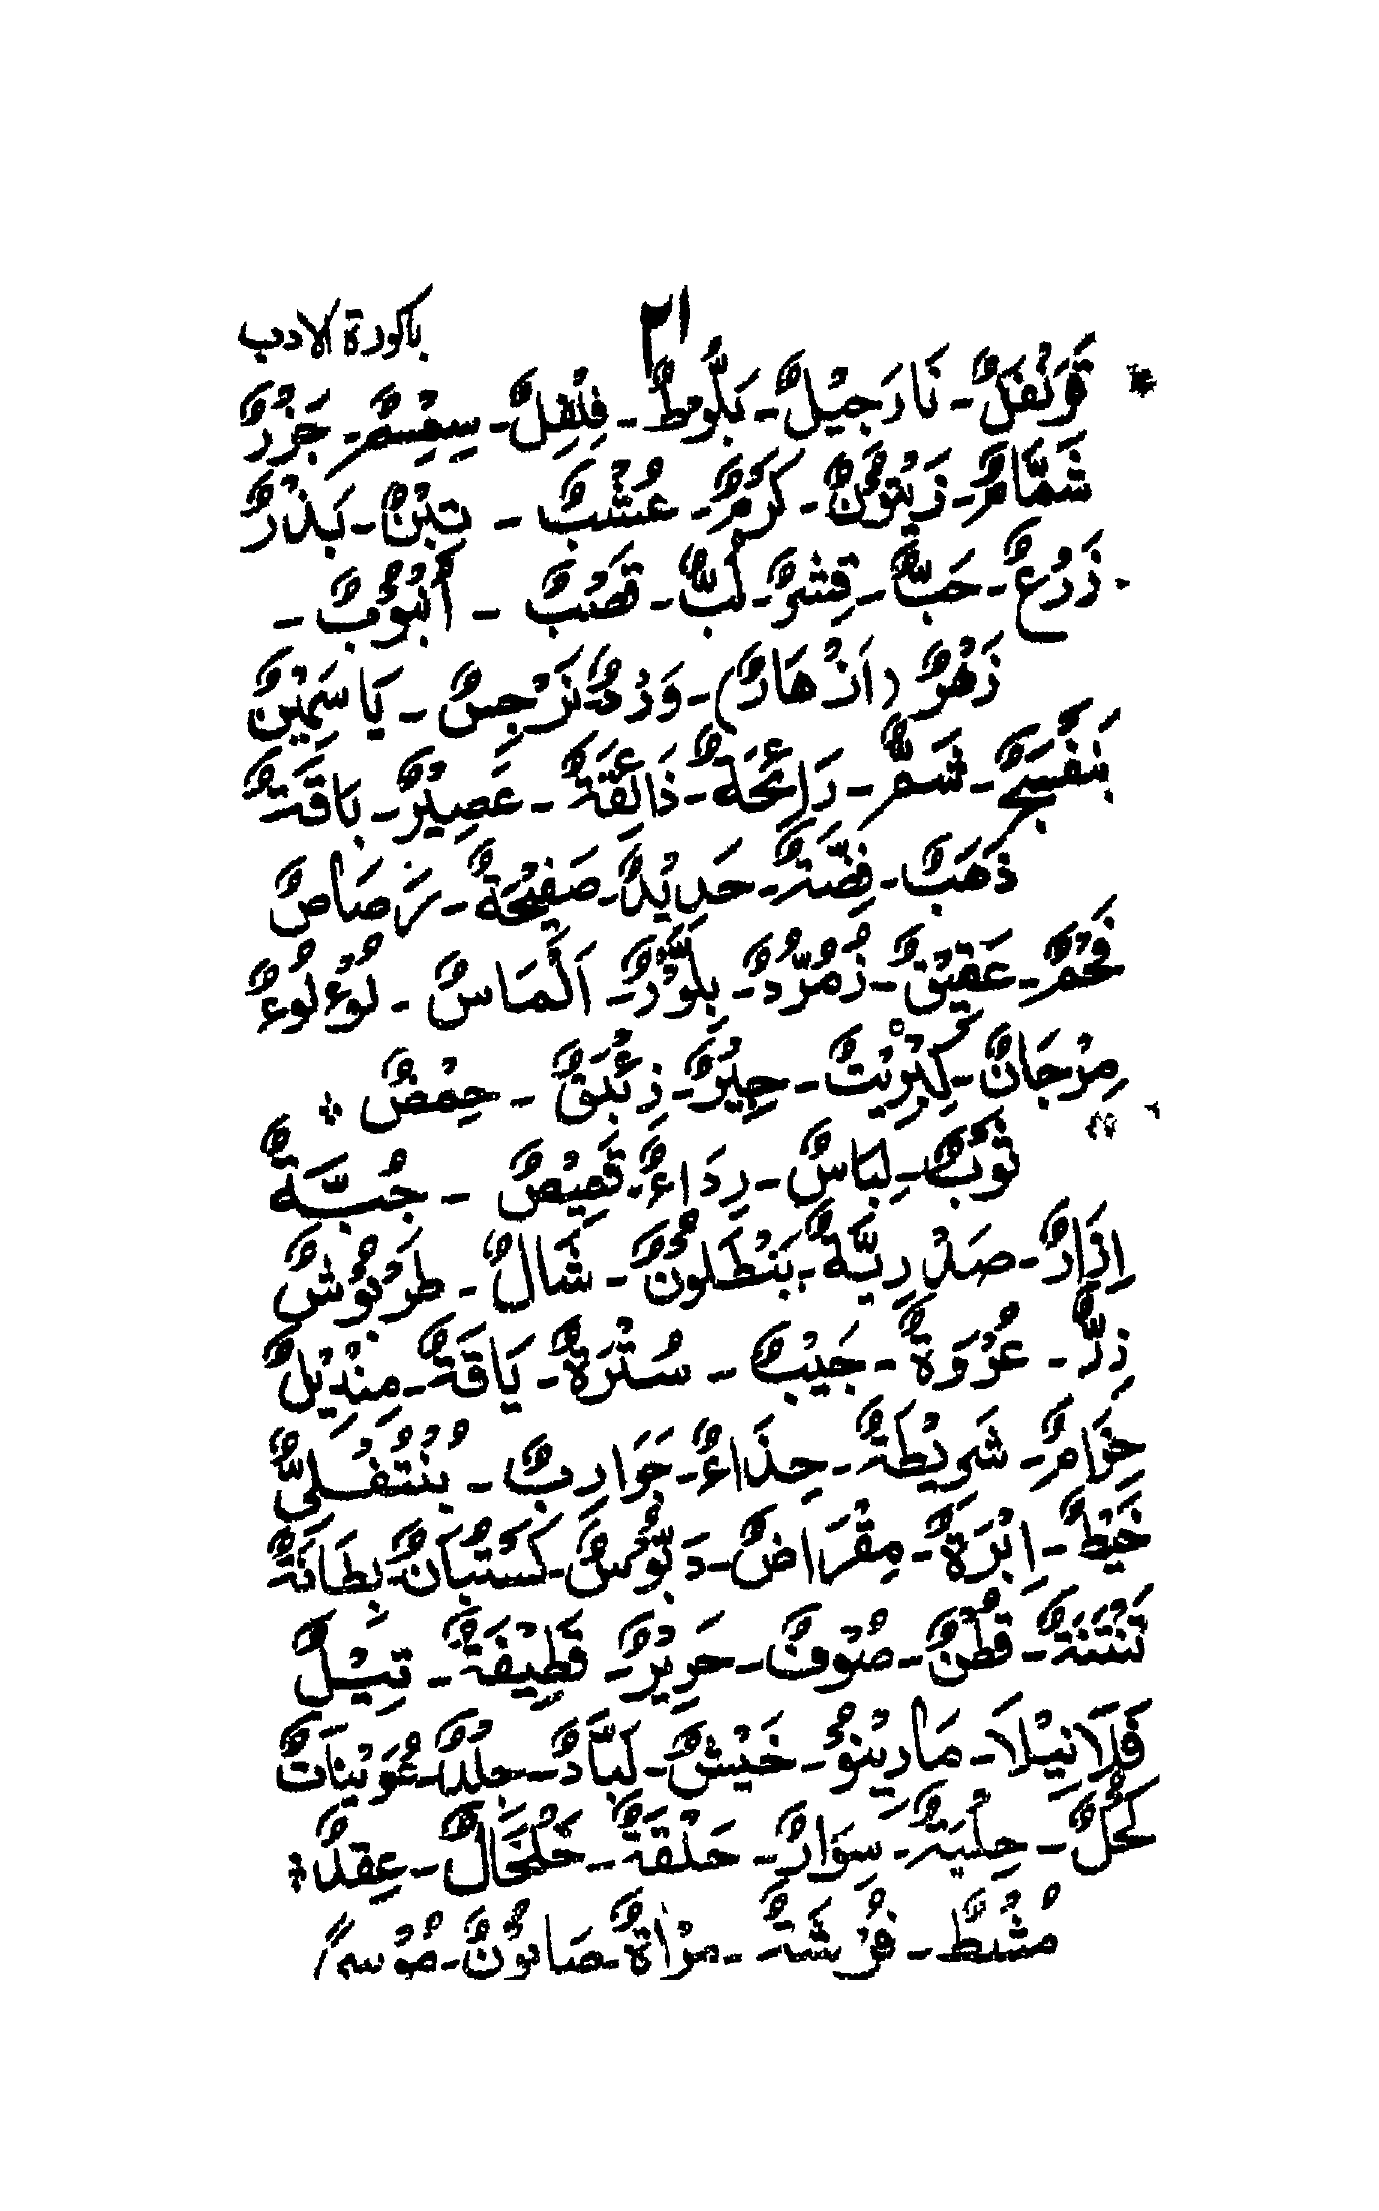 باكورة الادب ٢١
قَرَنْفُلٌ - نَارَجِيْلٌ - بَلُّوْطٌ - فِلْفِلٌ - سِمْسِمٌ - جَزَرٌ
شَمَّامٌ - زَيْتُوْنٌ - كَرْمٌ - عُشْبٌ - تِبْنٌ - بَذْرٌ
زَرْعٌ - حَبٌّ - قِشْرٌ - لُبٌّ - قَصَبٌ - اُنْبُوْبٌ -
زَهْرٌ (اَزْهَارٌ) - وَرْدٌ - نَرْجِسٌ - يَاسَمِيْنٌ
بَنَفْسَجٌ - شَمٌّ - رَائِحَةٌ - ذَائِقَةٌ - عَصِيْرٌ - بَاقَةٌ
ذَهَبٌ - فِضَّةٌ - حَدِيْدٌ - صَفِيْحَةٌ - رَصَاصٌ
فَحْمٌ - عَقِيْقٌ - زُمُرُّدٌ - بِلَّوْرٌ - اَلْمَاسٌ - لُوءْلُوءٌ
مِرْجَانٌ - كِبْرِيْتٌ - جِيْرٌ - زِئْبَقٌ - حِمْضٌ *
ثَوْبٌ - لِبَاسٌ - رِدَاءٌ - قَمِيْصٌ - جُبَّةٌ
اِزَارٌ - صَدْرِيَّةٌ - بَنْطَلُوْنٌ - شَالٌ - طَرْبُوْشٌ
زِرٌّ - عُرْوَةٌ - جَيْبٌ - سُتْرَةٌ - يَاقَةٌ - مِنْدِيْلٌ
حِزَامٌ - شَرِيْطَةٌ - حِذَاءٌ - جَوَارِبٌ - بُنْتُفُلِيٌّ
خَيْطٌ - اِبْرَةٌ - مِقْرَاضٌ - دَبُّوْسٌ - كَسْتُبَانٌ - بِطَانَةٌ
تَنْتَنَةٌ - قُطْنٌ - صُوْفٌ - حَرِيْرٌ - قَطِيْفَةٌ - تِيْلٌ
فَلَانِيْلَا - مَارِيْنُوْ - خَيْشٌ - لَبَّادٌ - جِلْدٌ - عُوَيْنَاتٌ
كُحْلٌ - حِلْيَةٌ - سِوَارٌ - حَلْقَةٌ - خَلْخَالٌ - عِقْدٌ *
مُشْطٌ - فُرْشَةٌ - مِرْاٰةٌ - صَابُوْنٌ - مُوْسٰى